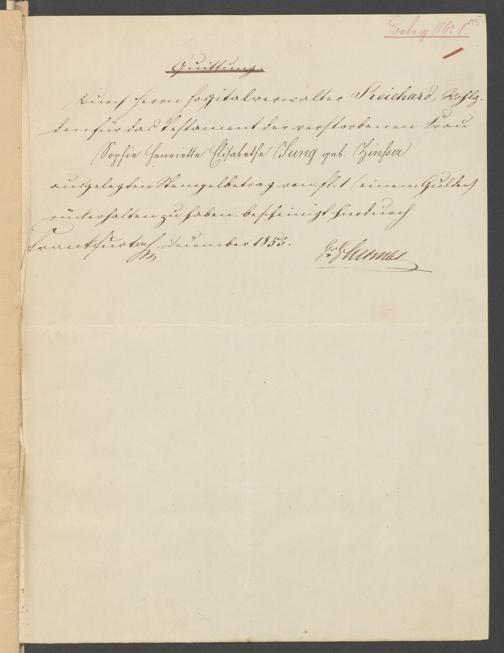 Beleg No. 1
Quittung.
Durch Herrn Hospitalverwalter Reichard,
den für das Testament der verstorbenen Frau
Sophie Henriette Elisabethe Jung geb. Zinsser
ausgelegten Stempelbetrag von fl. 1 (einem Gulden)
rückerhalten zu haben bescheinigt hierdurch
Frankfurt a/M, December 1853.